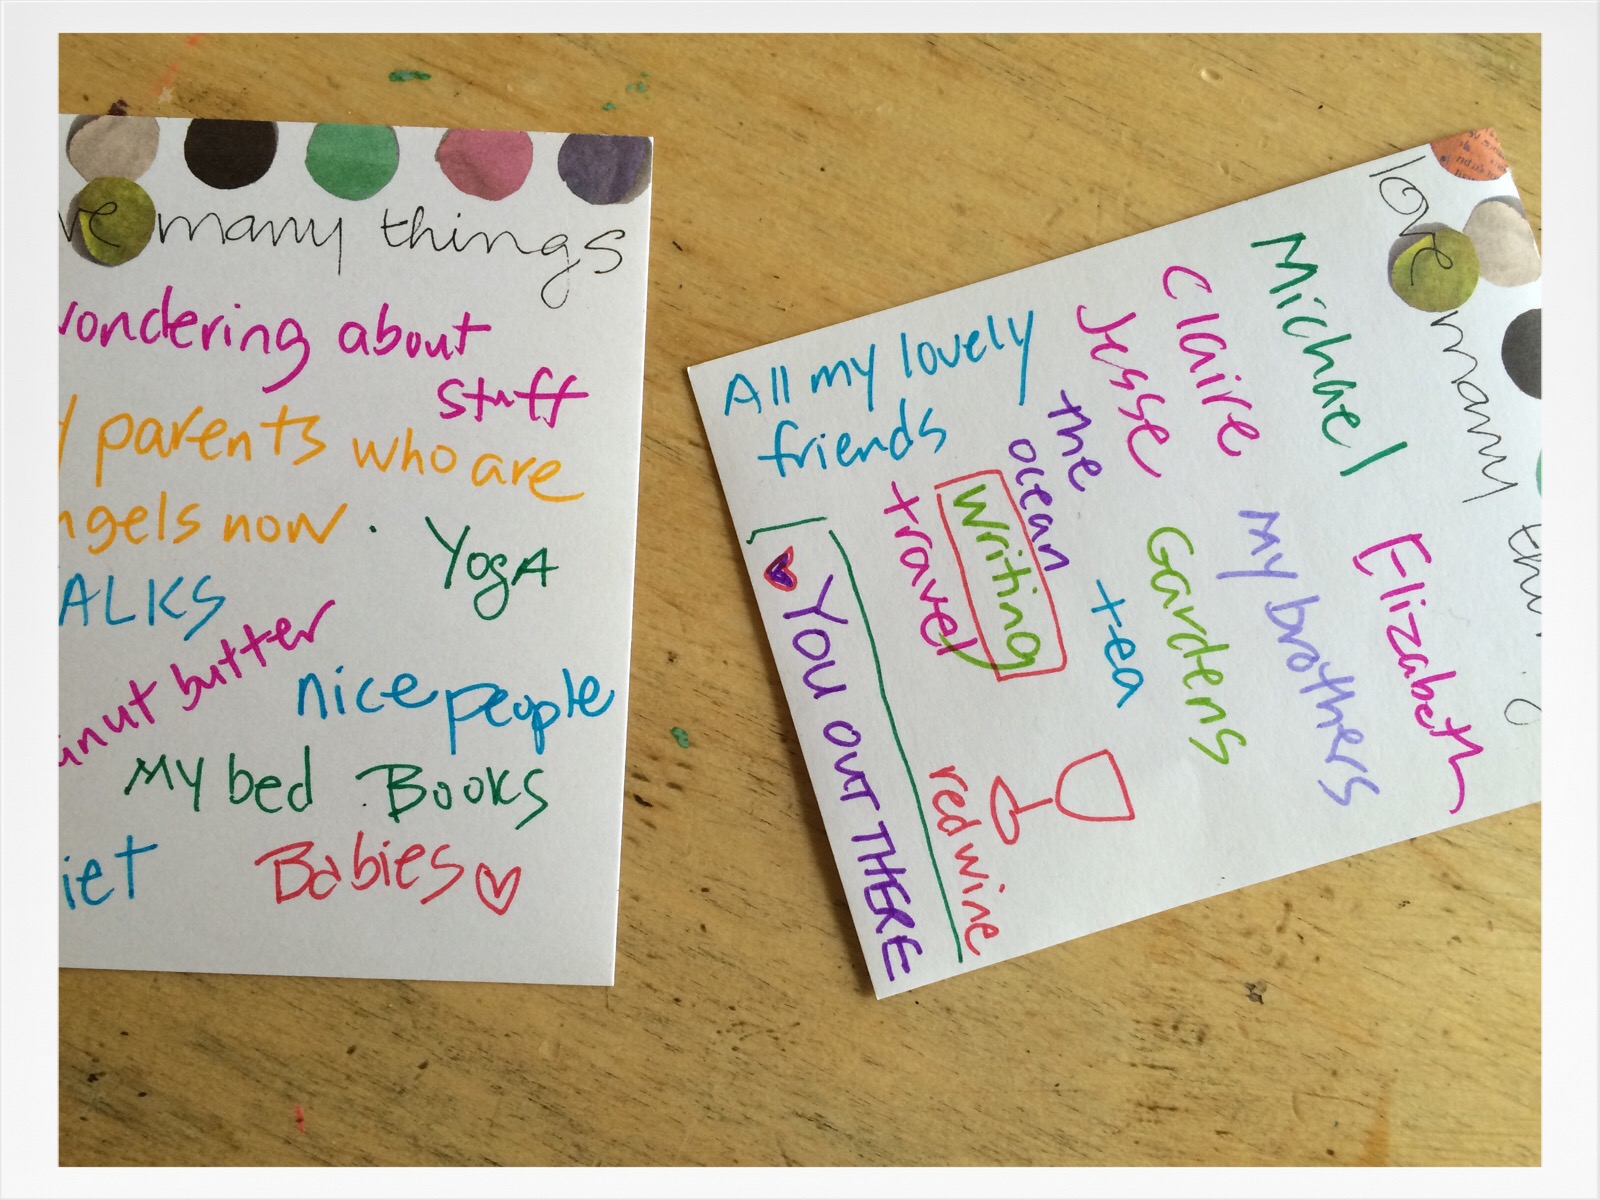 ve many things
wondering about
stuff
y parents who are
ngels now.
YogA
ALKS
anut butter
nice people
My bed Books
iet
Babies
love many
Michael
Claire
Jesse
All my lovely
friends
Elizabeth
My brothers
Gardens
tea
the
ocean
Writing
travel
red wine
YOU OUT THERE